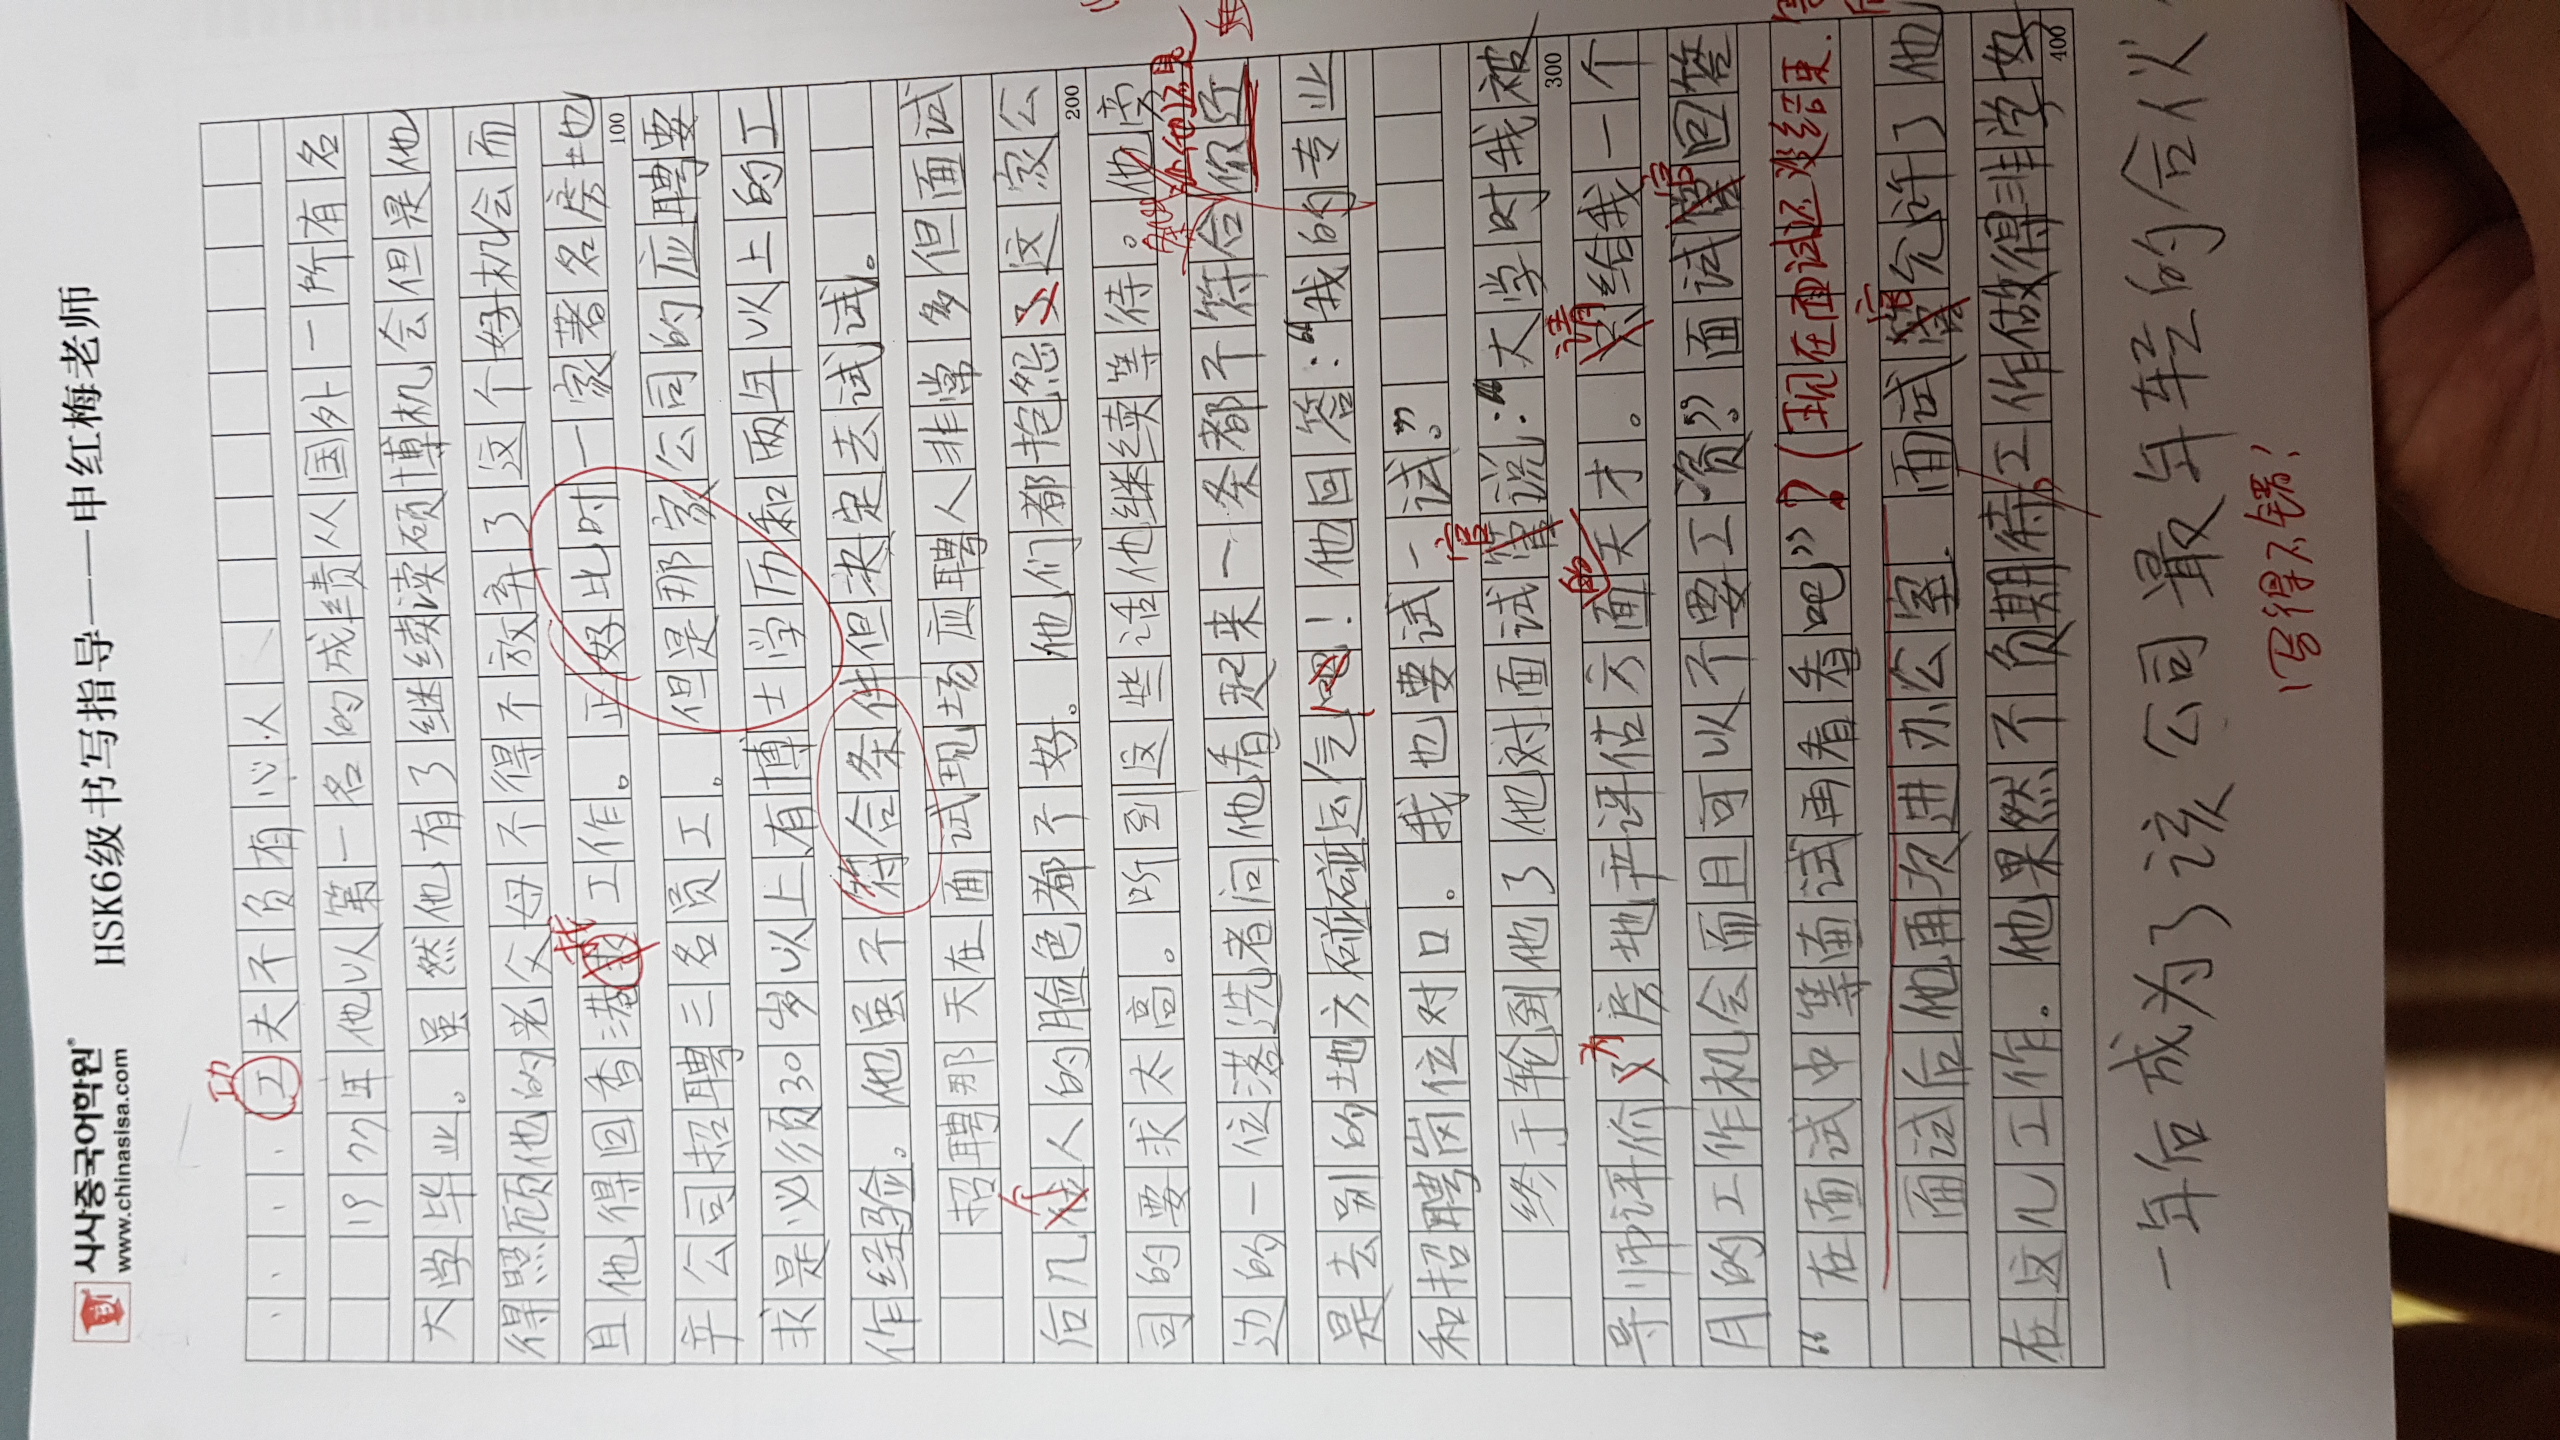 시사중국어학원
www.chinasisa.com
HSK6级书写指导——申红梅老师
功
工夫不负有心人
1997年他以第一名的成绩从国外一所有名
大学毕业。虽然他有了继续读硕博机会但是他
得照顾他的老父母不得不放弃了这个好机会而
找
且他得回香港 工作。正好比时一家著名房地
100
产公司招聘三名员工。但是那家公司的应聘要
求是必须30岁以上有博士学历和两年以上的工
作经验。他虽不符合条件但决定去试试。
招聘那天在面试现场应聘人非常多但面试
后几 人的脸色都不好。他们都抱怨 这家公
200
司的要求太高。听到这些话他继续等待。他旁
边的一位落选者问他看起来一条都不符合你还
是去别的地方碰碰运气吧!他回答:“我的专业
和招聘岗位对口。我也要试一试”。
官
终于轮到他了他对面试 说:“大学时我被
300
为
的
请
导师评价 房地产评估方面天才。 给我一个
官
月的工作机会而且可以不要工资”。面试 回答
“在面试中等面试再看看吧”?(现在面试还没结束.
官
面试后他再次进办公室.面试 允许了他
在这儿工作。他果然不负期待工作做得非常好
400
一年后成为了该公司最年轻的合伙
写得不错!